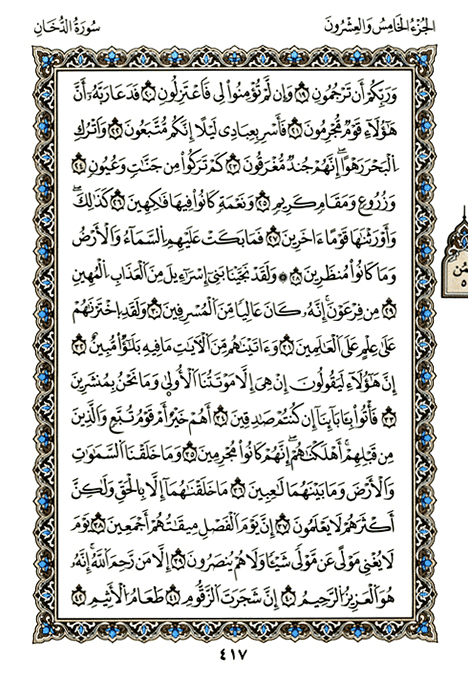 الجُزْءُ الخَامِسُ وَالعِشْرُونَ
سُورَةُ الدُّخَانِ
وَرَبِّكُمْ أَن تَرْجُمُونِ ١٩ وَإِن لَّمْ تُؤْمِنُواْ لِى فَاعْتَزِلُونِ ٢٠ فَدَعَا رَبَّهُۥ أَنَّ
هَٰٓؤُلَآءِ قَوْمٌ مُّجْرِمُونَ ٢١ فَاسْرِ بِعِبَادِى لَيْلًا إِنَّكُم مُّتَّبَعُونَ ٢٢ وَاتْرُكِ
الْبَحْرَ رَهْوًا إِنَّهُمْ جُندٌ مُّغْرَقُونَ ٢٣ كَمْ تَرَكُواْ مِن جَنَّٰتٍ وَعُيُونٍ ٢٤
وَزُرُوعٍ وَمَقَامٍ كَرِيمٍ ٢٥ وَنَعْمَةٍ كَانُواْ فِيهَا فَٰكِهِينَ ٢٦ كَذَٰلِكَ
وَأَوْرَثْنَٰهَا قَوْمًا ءَاخَرِينَ ٢٧ فَمَا بَكَتْ عَلَيْهِمُ السَّمَآءُ وَالْأَرْضُ
وَمَا كَانُواْ مُنظَرِينَ ٢٨ ۞ وَلَقَدْ نَجَّيْنَا بَنِىٓ إِسْرَٰٓءِيلَ مِنَ الْعَذَابِ الْمُهِينِ
٢٩ مِن فِرْعَوْنَ إِنَّهُۥ كَانَ عَالِيًا مِّنَ الْمُسْرِفِينَ ٣٠ وَلَقَدِ اخْتَرْنَٰهُمْ
عَلَىٰ عِلْمٍ عَلَى الْعَٰلَمِينَ ٣١ وَءَاتَيْنَٰهُم مِّنَ الْأٓيَٰتِ مَا فِيهِ بَلَٰٓؤٌاْ مُّبِينٌ ٣٢
إِنَّ هَٰٓؤُلَآءِ لَيَقُولُونَ إِنْ هِىَ إِلَّا مَوْتَتُنَا الْأُولَىٰ وَمَا نَحْنُ بِمُنشَرِينَ
٣٣ فَأْتُواْ بِـَٔابَآئِنَآ إِن كُنتُمْ صَٰدِقِينَ ٣٤ أَهُمْ خَيْرٌ أَمْ قَوْمُ تُبَّعٍ وَالَّذِينَ
مِن قَبْلِهِمْ أَهْلَكْنَٰهُمْ إِنَّهُمْ كَانُواْ مُجْرِمِينَ ٣٥ وَمَا خَلَقْنَا السَّمَٰوَٰتِ
وَالْأَرْضَ وَمَا بَيْنَهُمَا لَٰعِبِينَ ٣٦ مَا خَلَقْنَٰهُمَآ إِلَّا بِالْحَقِّ وَلَٰكِنَّ
أَكْثَرَهُمْ لَا يَعْلَمُونَ ٣٧ إِنَّ يَوْمَ الْفَصْلِ مِيقَٰتُهُمْ أَجْمَعِينَ ٣٨ يَوْمَ
لَا يُغْنِى مَوْلًى عَن مَّوْلًى شَيْـًٔا وَلَا هُمْ يُنصَرُونَ ٣٩ إِلَّا مَن رَّحِمَ اللَّهُ إِنَّهُۥ
هُوَ الْعَزِيزُ الرَّحِيمُ ٤٠ إِنَّ شَجَرَتَ الزَّقُّومِ ٤١ طَعَامُ الْأَثِيمِ ٤٢
٤١٧